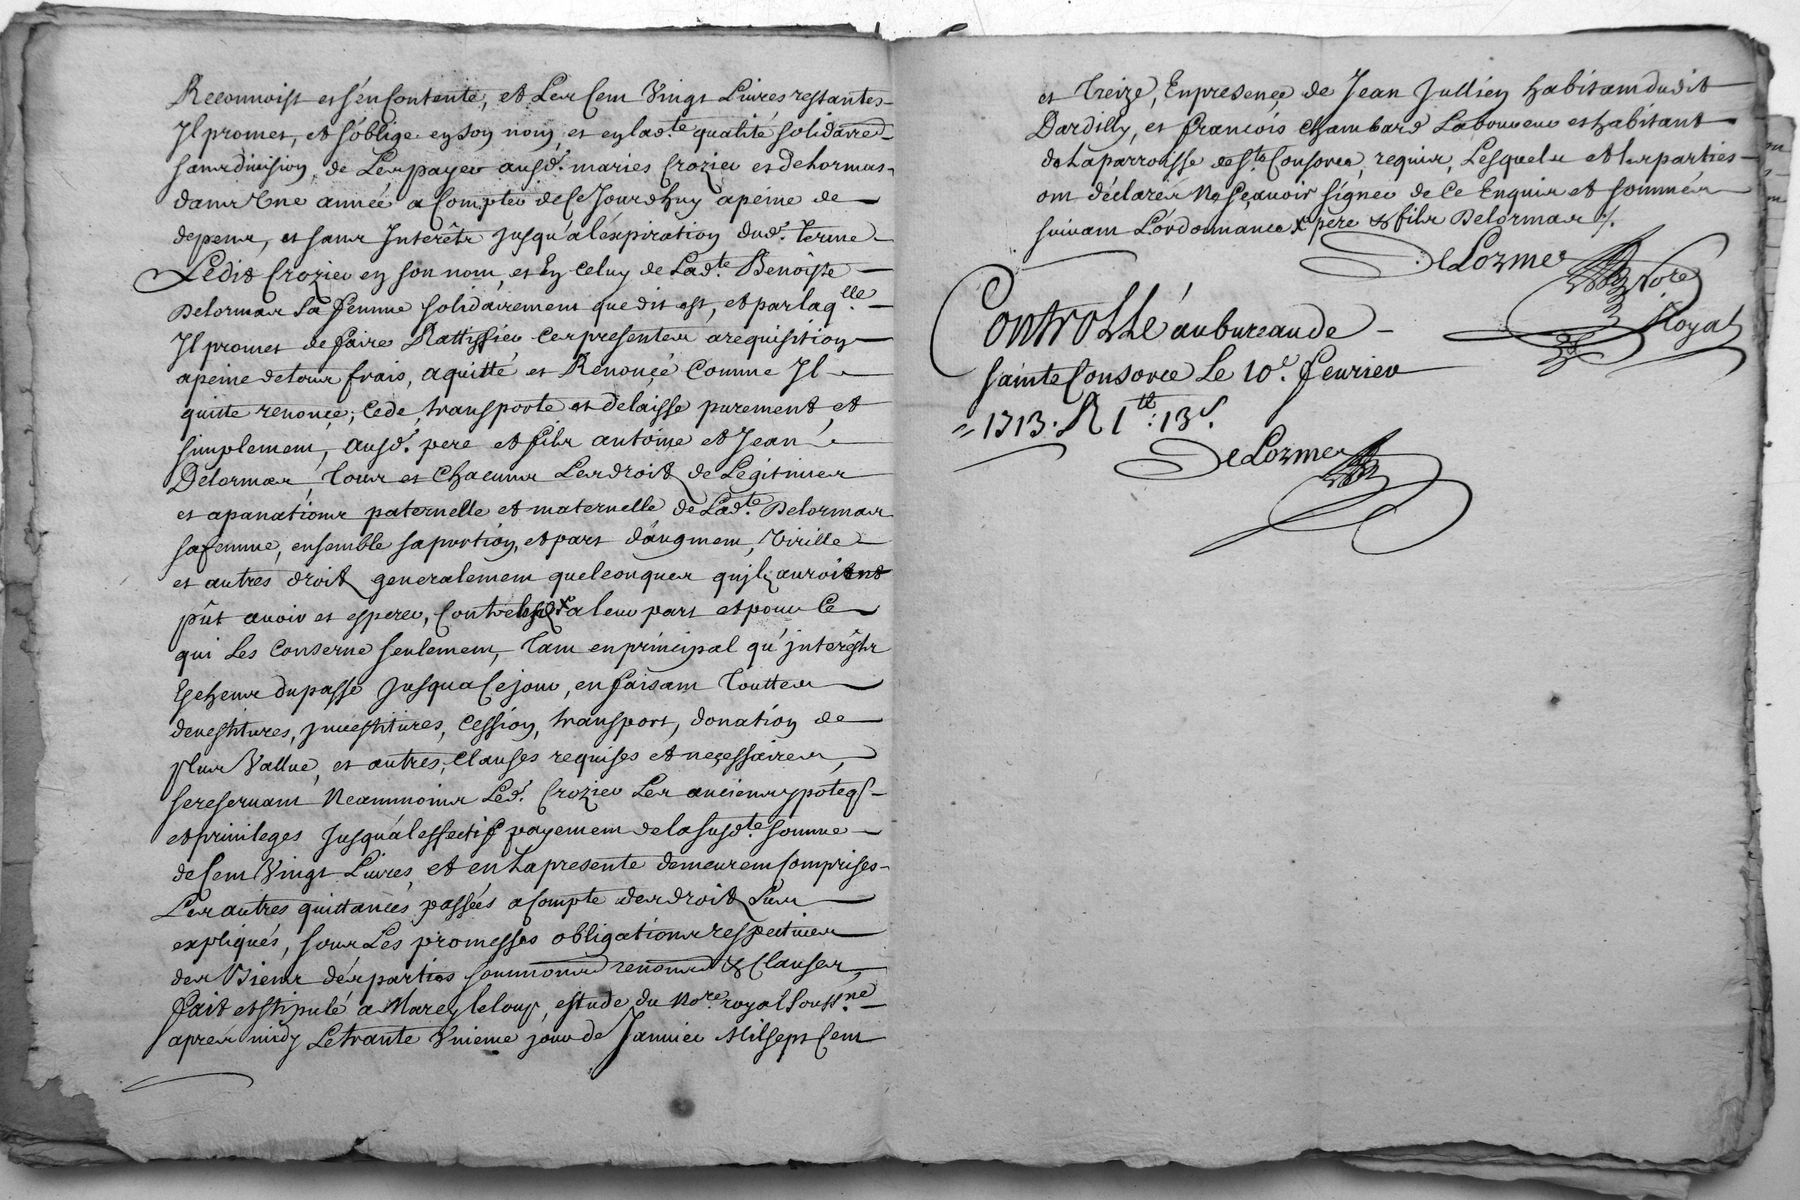 Reconnoist et s'en Contente, et Les Cent Vingt Livres restantes
Il promet, et s'oblige en son nom, et en lad.te qualité solidaire
sans division, de Les payer ausd. maries Crozier et Delormas
dans Une année a Compter de Ce Jourdhuy apeine de
depens, et sans Interêts Jusqu'a l'expiration dud. terme
Ledit Crozier en son nom, et En Celuy de Lad.te Benoiste
Delormas Sa femme solidairement que dit est, et par laq.lle
Il promet de faire Rattiffier Ces presentes a requisition
apeine de tous frais, a quitté et Renoncé Comme Il
quitte renonce, Cede, transporte et delaisse purement et
simplement, ausd. pere et fils antoine et Jean
Delormas, Tous et Chacuns Les droits de Legitimes
et apanations paternelle et maternelle de Lad.te Delormas
sa femme, ensemble sa portion, et part d'augment, Virille
et autres droits generalement quelconques qu'ils auroient
pût avoir et esperer, Contre lesd. x a leur part et pour Ce
qui Les Conserne seulement, Tant en principal qu'interêts
Echeus du passé Jusqua Ce jour, en faisant Touttes
devestitures, jnvestitures, Cession, transport, donation de
plus Vallue, et autres, Clauses requises et necessaires,
se reservant Neanmoins Led. Crozier Les anciens ypoteqs
et privileges Jusqu'a l'effectif payement de la susd.te somme
de Cent Vingt Livres, et en La presente demeurent Comprises
Les autres quittances passées a Compte des droits Sus
expliqués, sous Les promesses obligations respectives
des Biens des parties soumions renons & Clauses,
fait et stipulé a Marcy le loup, estude du No.re royal souss.ne
apres midy Le trante Vnieme jour de Janvier Mil sept Cent
et Treize, En presence de Jean Jullien habitant dudit
Dardilly, et françois Chambard Laboureur et habitant
de La parroisse de S.te Consorce, requis, Lesquels et les parties
ont déclarés Ne sçavoir signer de Ce Enquis et sommés
suivant L'ordonnance x pere & fils Delormas ./.
DeLorme
No.re
Royal
Controllé au bureau de
sainte Consorce Le 10e. fevrier
1713. R 1 tt: 13 s.
DeLorme